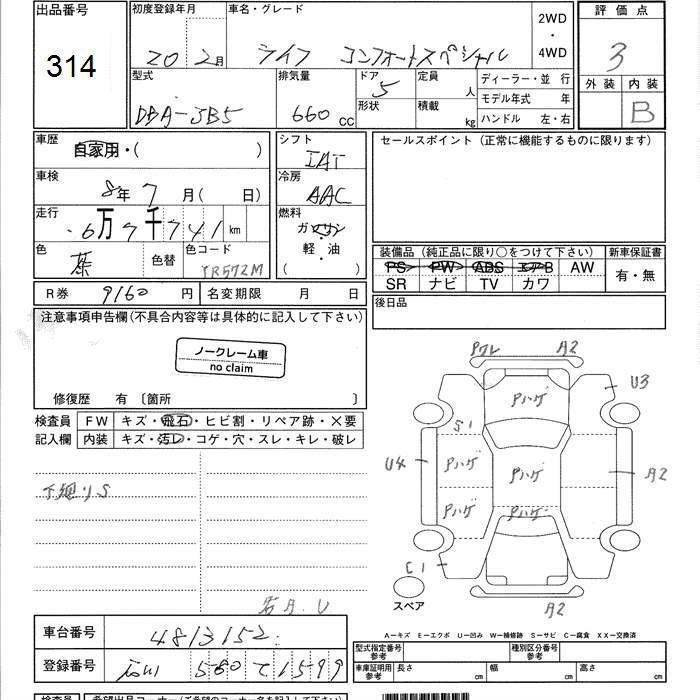 出品番号
314
初度登録年月
20年 2月
車名・グレード
ライフ コンフォートスペシャル
2WD
・
4WD
評価点
3
外装 内装
B
型式
DBA-JB5
排気量
660 CC
ドア
5
形状
定員
人
積載
kg
ディーラー・並行
モデル年式 年
ハンドル 左・右
車歴
自家用・( )
シフト
IAT
セールスポイント (正常に機能するものに限ります)
車検
8年 7月( 日)
冷房
AAC
走行
6万7千741km
燃料
ガソリン
軽・油
( )
色
茶
色替
色コード
YR572M
装備品 (純正品に限り○をつけて下さい)
新車保証書
PS PW ABS エアB AW
SR ナビ TV カワ
有・無
R券 9160円
名変期限 月 日
後日品
注意事項申告欄(不具合内容等は具体的に記入して下さい)
ノークレーム車
no claim
修復歴 有 〔箇所 〕
検査員
記入欄
FW キズ・飛石・ヒビ割・リペア跡・×要
内装 キズ・汚レ・コゲ・穴・スレ・キレ・破レ
下廻りS
Pワレ A2
U3
Pハゲ
S1
U4
Pハゲ Pハゲ
A2
Pハゲ Pハゲ
C1
スペア
A2
A-キズ E-エクボ U-凹み W-補修跡 S-サビ C-腐食 XX-交換済
車台番号
4813152
登録番号
580 て 1599
型式指定番号
参考
種別区分番号
参考
車庫証明用
参考
長さ cm 幅 cm 高さ cm
検査員
希望出品コーナー(ご希望のコーナー名を記入して下さい)